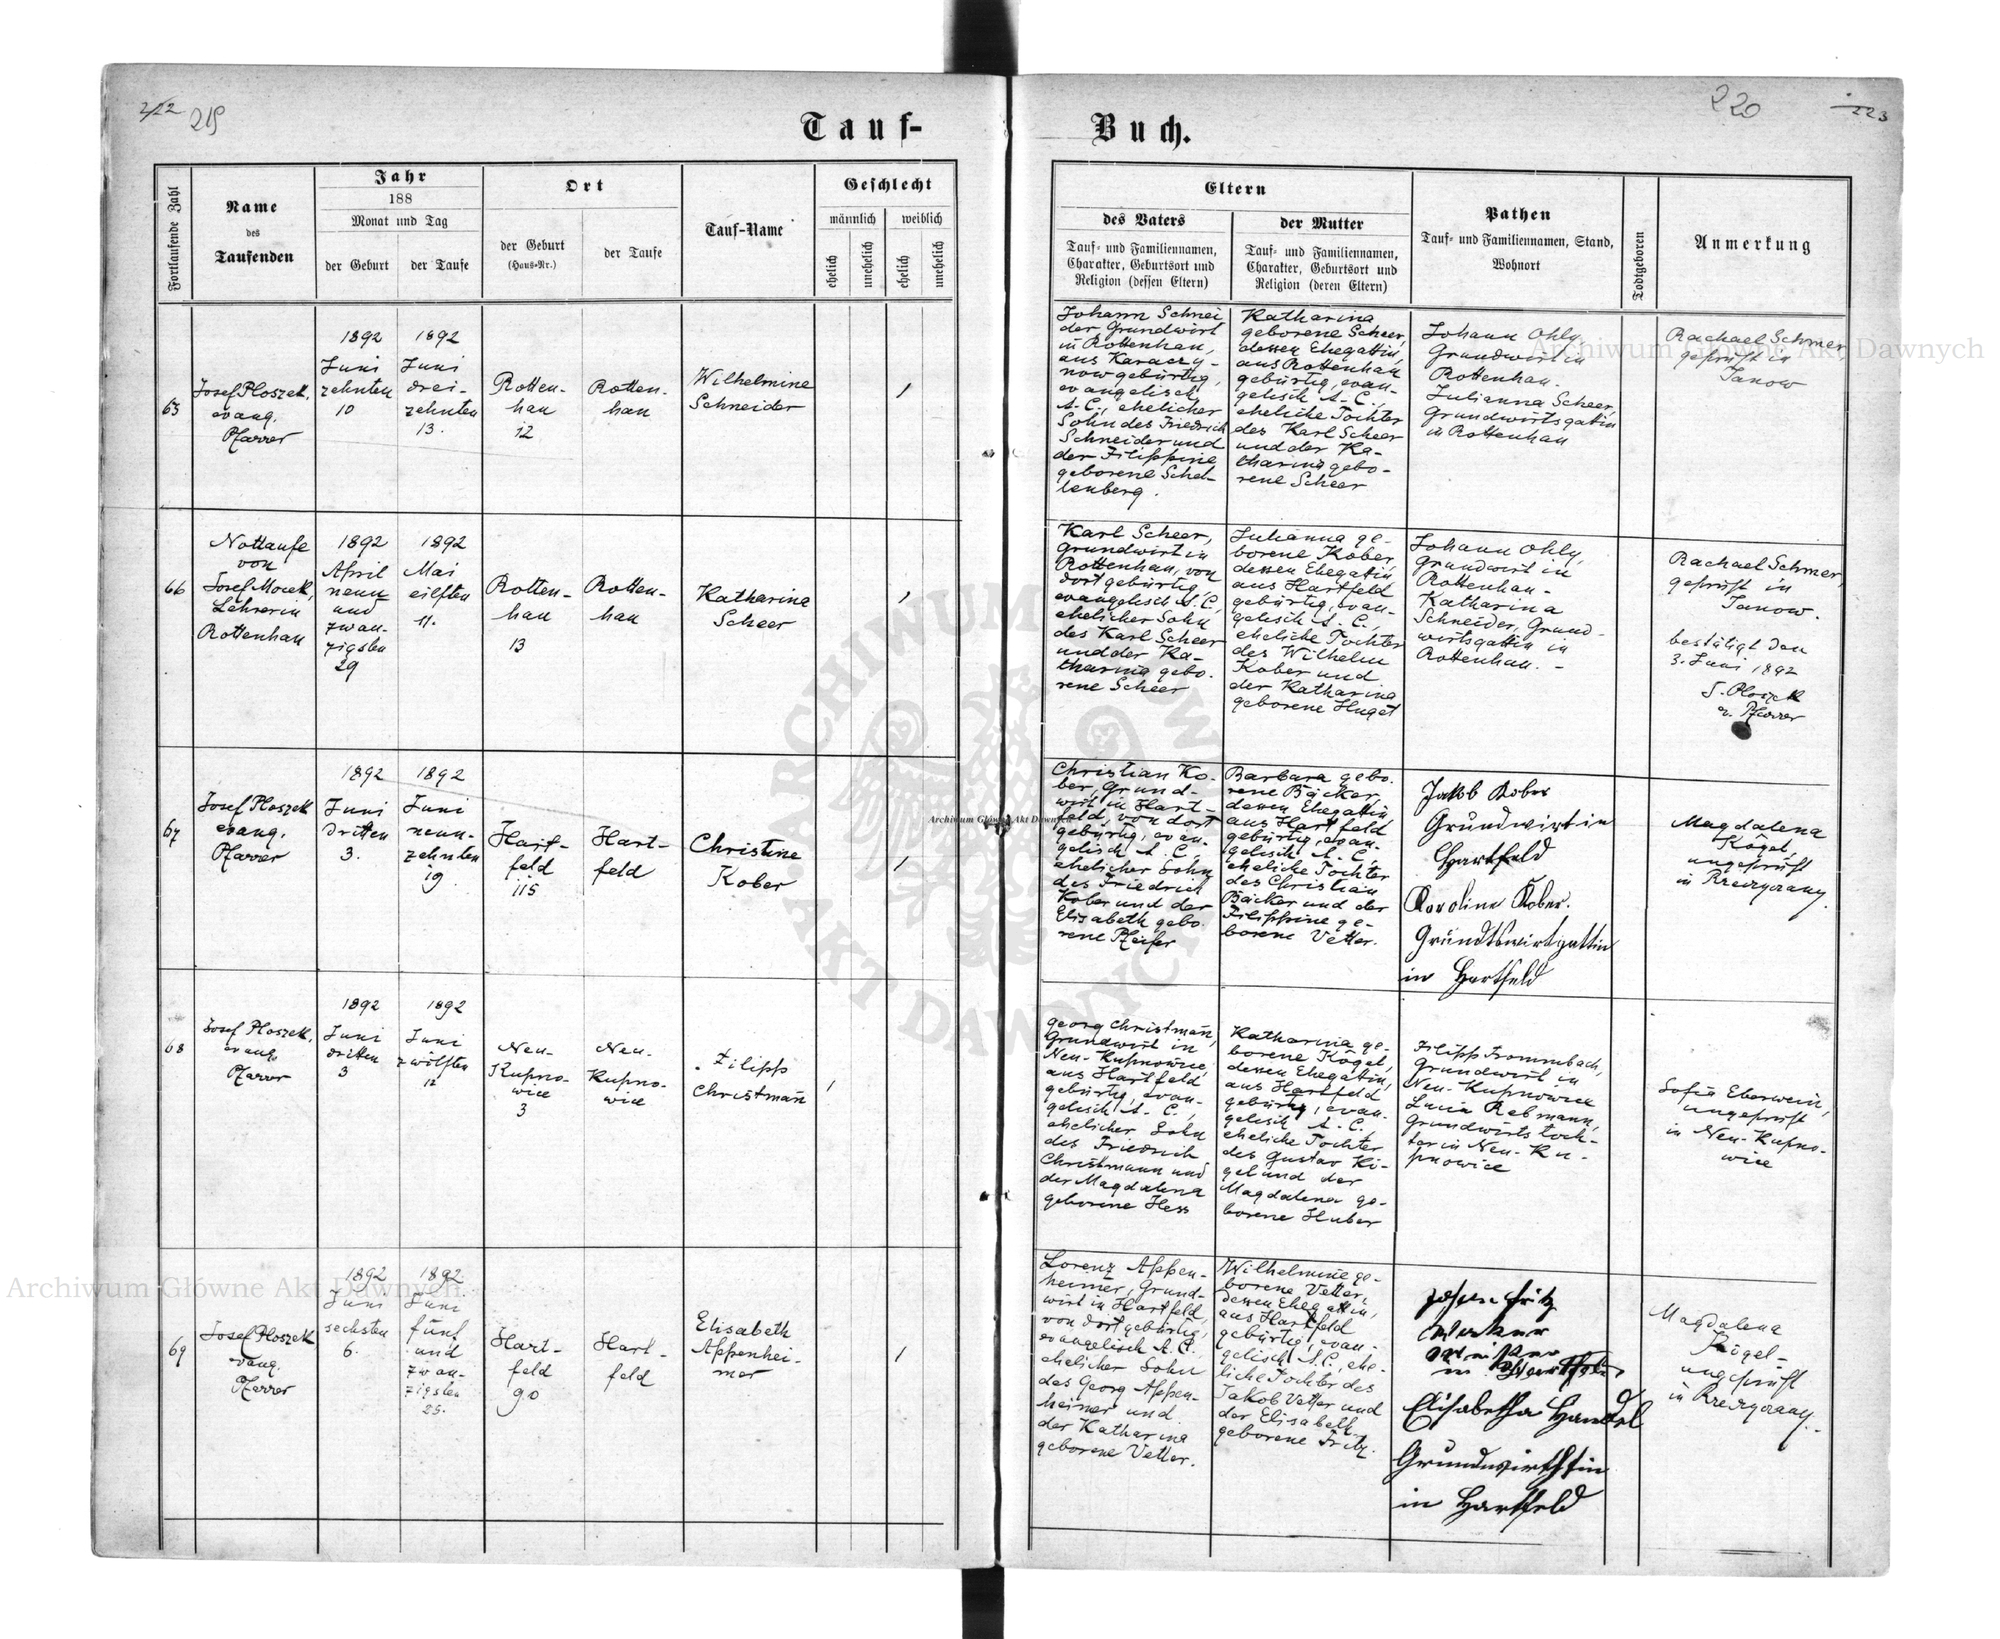 222
219
220
223
Tauf-
Buch.
Fortlaufende Zahl
Name
des
Taufenden
Jahr
188
Monat und Tag
der Geburt
der Taufe
Ort
der Geburt
(Haus-Nr.)
der Taufe
Tauf-Name
Geschlecht
männlich
weiblich
ehelich
unehelich
ehelich
unehelich
Eltern
des Vaters
Tauf- und Familiennamen,
Charakter, Geburtsort und
Religion (dessen Eltern)
der Mutter
Tauf- und Familiennamen,
Charakter, Geburtsort und
Religion (deren Eltern)
Pathen
Tauf- und Familiennamen, Stand,
Wohnort
Todtgeboren
Anmerkung
65
Josef Ploszek,
evang.
Pfarrer
1892
Juni
zehnten
10
1892
Juni
drei-
zehnten
13.
Rotten-
han
12
Rotten-
han
Wilhelmine
Schneider
1
Johann Schnei
der Grundwirt
in Rottenhan,
aus Karaczy-
now gebürtig,
evangelisch
A. C., ehelicher
Sohn des Friedrich
Schneider und
der Filippine
geborene Schel-
lenberg.
Katharina
geborene Scheer,
dessen Ehegattin,
aus Rottenhan
gebürtig, evan-
gelisch A. C.,
eheliche Tochter
des Karl Scheer
und der Ka-
tharina gebo-
rene Scheer
Johann Ohly,
Grundwirt in
Rottenhan.
Julianna Scheer,
Grundwirtsgattin
in Rottenhan
Rachael Schmer,
geprüft in
Janow
66
Nottaufe
von
Josef Mocek,
Lehrer in
Rottenhan
1892
April
neun
und
zwan-
zigsten
29
1892
Mai
eilften
11.
Rotten-
han
13
Rotten-
han
Katharina
Scheer
1
Karl Scheer,
Grundwirt in
Rottenhan, von
dort gebürtig,
evangelisch A. C.,
ehelicher Sohn
des Karl Scheer
und der Ka-
tharina gebo-
rene Scheer
Julianna ge-
borene Kober,
dessen Ehegattin,
aus Hartfeld
gebürtig, evan-
gelisch A. C.,
eheliche Tochter
des Wilhelm
Kober und
der Katharina
geborene Huget
Johann Ohly,
Grundwirt in
Rottenhan.
Katharina
Schneider, Grund-
wirtsgattin in
Rottenhan. -
Rachael Schmer,
geprüft in
Janow.
bestätigt den
3. Juni 1892
J. Ploszek
e. Pfarrer
67
Josef Ploszek
evang.
Pfarrer
1892
Juni
dritten
3.
1892
Juni
neun-
zehnten
19
Hart-
feld
115
Hart-
feld
Christine
Kober
1
Christian Ko-
ber, Grund-
wirt in Hart-
feld, von dort
gebürtig, evan-
gelisch A. C.,
ehelicher Sohn
des Friedrich
Kober und der
Elisabeth gebo
rene Pfeifer
Barbara gebo.
rene Bäcker,
dessen Ehegattin
aus Hartfeld
gebürtig, evan-
gelisch A. C.,
eheliche Tochter
des Christian
Bäcker und der
Filippine ge-
borene Vetter.
Jakob Kober
Grundwirt in
Hartfeld
Karoline Kober.
Grundtswirtgattin
in Hartfeld
Magdalena
Kögel,
ungeprüft
in
68
Josef Ploszek,
evang.
Pfarrer
1892
Juni
dritten
3
1892
Juni
zwölften
12
Neu-
Kupno-
wice
3
Neu-
Kupno-
wice
Filipp
Christmañ
1
Georg Christmañ,
Grundwirt in
Neu-Kupnowice,
aus Hartfeld
gebürtig, evan-
gelisch A. C.,
ehelicher Sohn
des Friedrich
Christmann und
der Magdalena
geborene Hess
Katharina ge-
borene Kögel,
dessen Ehegattin,
aus Hartfeld
gebürtig, evan-
gelisch A. C.,
eheliche Tochter
des Gustav Kö-
gel und der
Magdalena ge-
borene Huber
Filipp Trommbach,
Grundwirt in
Neu-Kupnowice
Lucia Rebmann,
Grundwirts toch-
ter in Neu-Ku-
pnowice
Sofia Eberwein,
ungeprüft
in Neu-Kupno-
wice
69
Josef Ploszek
evang.
Pfarrer
1892
Juni
sechsten
6.
1892
Juni
fünf
und
zwan-
zigsten
25.
Hart-
feld
90
Hart-
feld
Elisabeth
Appenhei-
mer
1
Lorenz Appen-
heimer, Grund-
wirt in Hartfeld,
von dort gebürtig,
evangelisch A. C.,
ehelicher Sohn
des Georg Appen-
heimer und
der Katharina
geborene Vetter.
Wilhelmine ge-
borene Vetter,
dessen Ehegattin,
aus Hartfeld
gebürtig, evan-
gelisch A. C., ehe-
liche Tochter des
Jakob Vetter und
der Elisabeth
geborene Fritz.
Fritz
in
Elisabetha Handel
Grundwirthin
in Hartfeld
Magdalena
Kögel-
ungeprüft
in
Archiwum Główne Akt Dawnych
Archiwum Główne Akt Dawnych
Archiwum Główne Akt Dawnych
ARCHIWUM GŁÓWNE AKT DAWNYCH